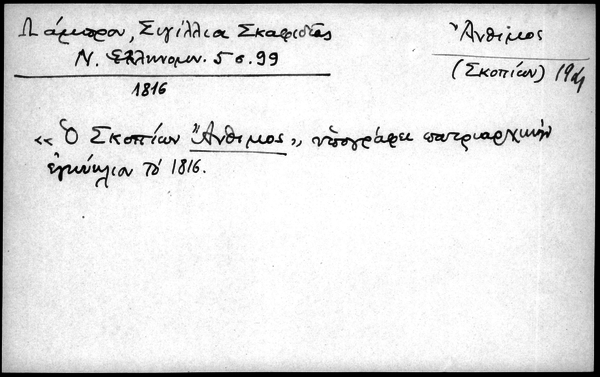 Λάμπρου, Σιγίλλια Σκαφιδιάς
Ν. Ἑλληνομν. 5 σ. 99
1816
Ἄνθιμος
(Σκοπίων)
« Ὁ Σκοπίων Ἄνθιμος » ὑπογράφει πατριαρχικὴν
ἐγκύκλιον τοῦ 1816.